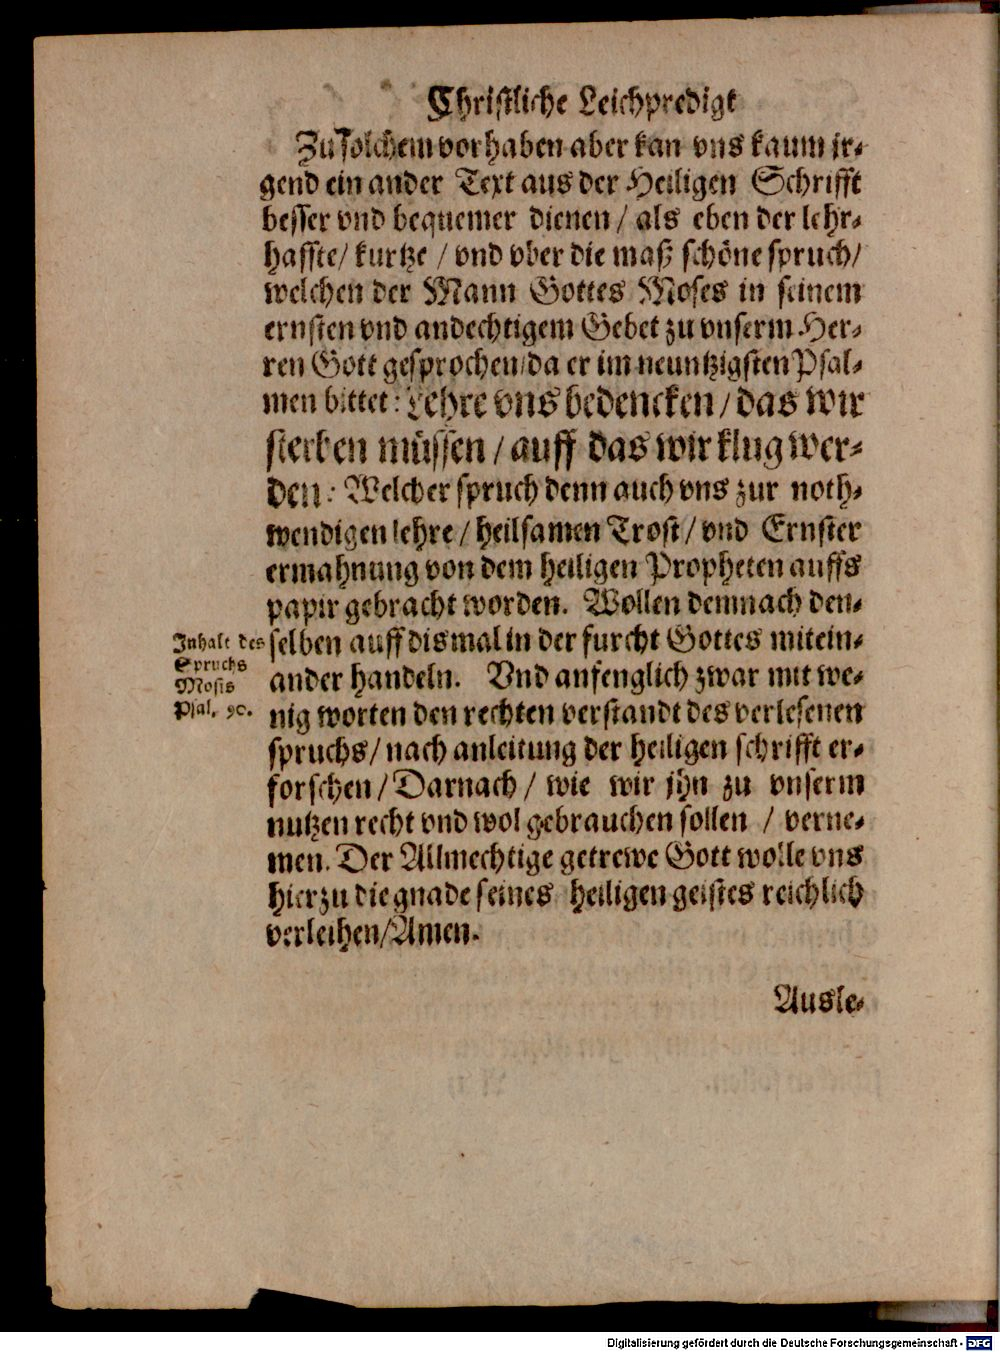 Christliche Leichpredigt
Zu solchem vorhaben aber kan vns kaum jr-
gend ein ander Text aus der Heiligen Schrifft
besser vnd bequemer dienen / als eben der lehr-
haffte / kurtze / vnd vber die maß schöne spruch /
welchen der Mann Gottes Moses in seinem
ernsten vnd andechtigem Gebet zu vnserm Her-
ren Gott gesprochen / da er im neuntzigsten Psal-
men bittet: Lehre vns bedencken / das wir
sterben müssen / auff das wir klug wer-
den: Welcher spruch denn auch vns zur noth-
wendigen lehre / heilsamen Trost / vnd Ernster
ermahnung von dem heiligen Propheten auffs
papir gebracht worden. Wollen demnach den-
selben auff dismal in der furcht Gottes mitein-
ander handeln. Vnd anfenglich zwar mit we-
nig worten den rechten verstandt des verlesenen
spruchs / nach anleitung der heiligen schrifft er-
forschen / Darnach / wie wir jhn zu vnserm
nutzen recht vnd wol gebrauchen sollen / verne-
men. Der Allmechtige getrewe Gott wolle vns
hierzu die gnade seines heiligen geistes reichlich
verleihen / Amen.
Inhalt des
Spruchs
Mosis
Psal. 90.
Ausle-
Digitalisierung gefördert durch die Deutsche Forschungsgemeinschaft - DFG